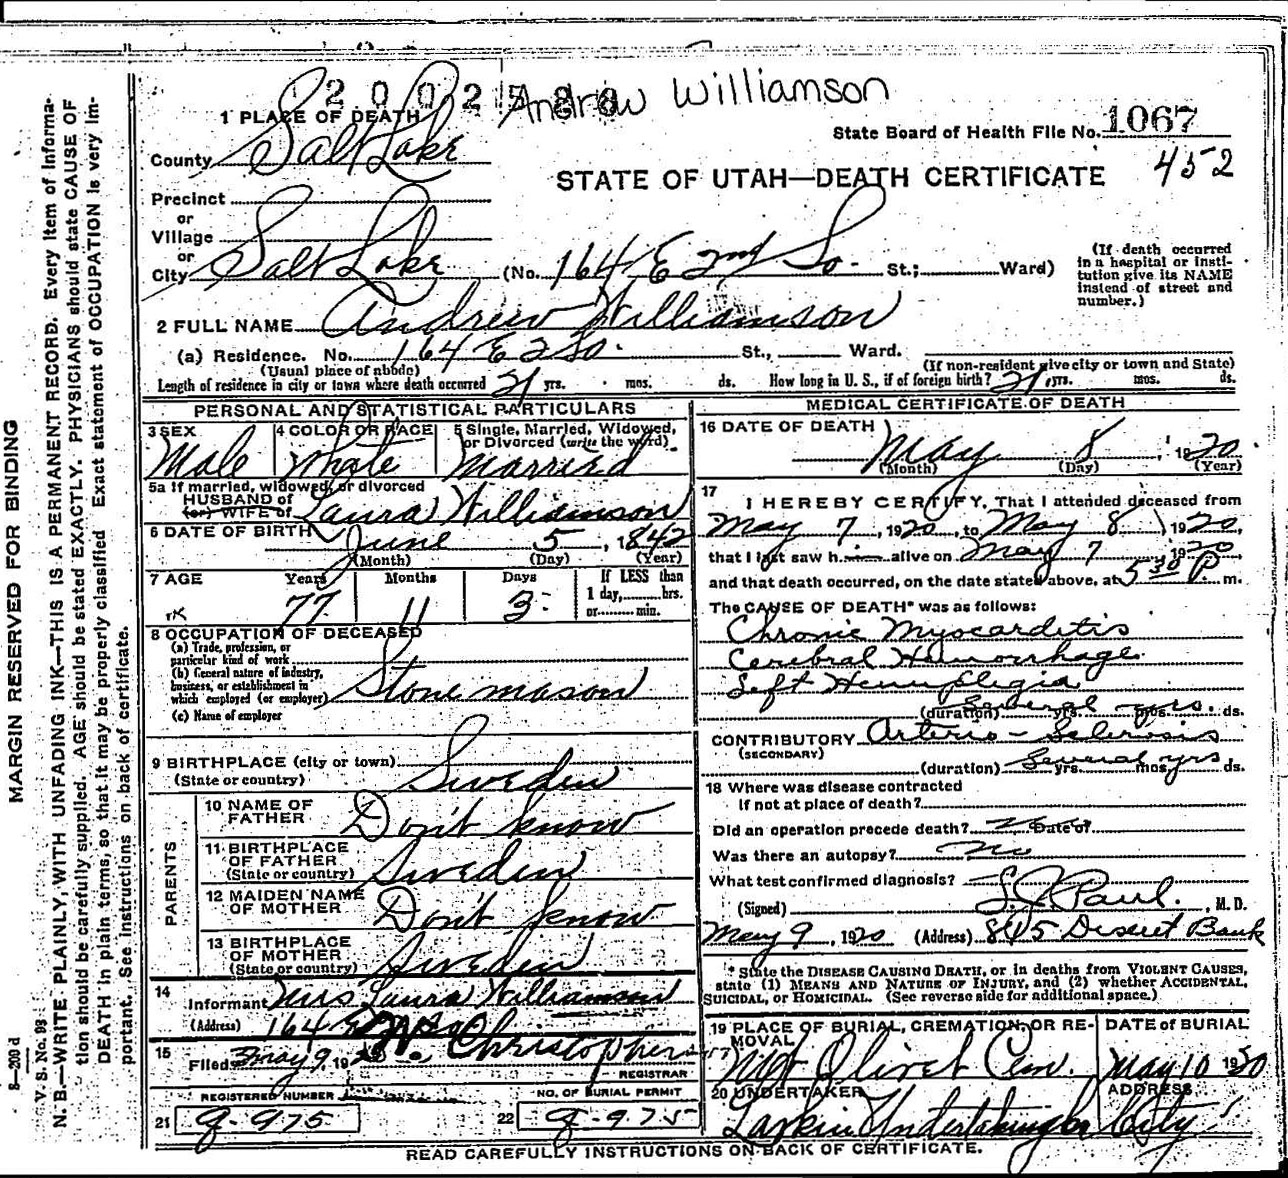 2002588
Andrew Williamson
1 PLACE OF DEATH
State Board of Health File No. 1067
452
County Salt Lake
STATE OF UTAH—DEATH CERTIFICATE
Precinct
or
Village
or
City Salt Lake (No. 164 E 2nd So. St.; Ward)
(If death occurred in a hospital or insti-
tution give its NAME
instead of street and
number.)
2 FULL NAME Andrew Williamson
(a) Residence. No. 164 E 2 So. St., Ward.
(Usual place of abode) (If non-resident give city or town and State)
Length of residence in city or town where death occurred 21 yrs. mos. ds. How long in U. S., if of foreign birth? 21 yrs. mos. ds.
PERSONAL AND STATISTICAL PARTICULARS
3 SEX
Male
4 COLOR OR RACE
White
5 Single, Married, Widowed,
or Divorced (write the word)
Married
5a If married, widowed, or divorced
HUSBAND of
(or) WIFE of Laura Williamson
6 DATE OF BIRTH June 5, 1842
(Month) (Day) (Year)
7 AGE Years Months Days If LESS than
1 day, hrs.
or min.
77 11 3
8 OCCUPATION OF DECEASED
(a) Trade, profession, or
particular kind of work
(b) General nature of industry,
business, or establishment in
which employed (or employer) Stone mason
(c) Name of employer
9 BIRTHPLACE (city or town)
(State or country) Sweden
PARENTS
10 NAME OF
FATHER Don't know
11 BIRTHPLACE
OF FATHER
(State or country) Sweden
12 MAIDEN NAME
OF MOTHER Don't know
13 BIRTHPLACE
OF MOTHER
(State or country) Sweden
14
Informant Mrs Laura Williamson
(Address) 164 E 2 So
15
Filed May 9, 1920 Christophers
REGISTRAR
REGISTERED NUMBER
21 G-975
NO. OF BURIAL PERMIT
22 G-975
MEDICAL CERTIFICATE OF DEATH
16 DATE OF DEATH
May 8, 1920
(Month) (Day) (Year)
17
I HEREBY CERTIFY, That I attended deceased from
May 7, 1920, to May 8, 1920,
that I last saw h im alive on May 7, 1920
and that death occurred, on the date stated above, at 5 30 P. m.
The CAUSE OF DEATH* was as follows:
Chronic Myocarditis
Cerebral Hemorrhage
Left Hemiplegia
(duration) Several yrs. mos. ds.
CONTRIBUTORY Arterio-Sclerosis
(SECONDARY)
(duration) Several yrs. mos. yrs ds.
18 Where was disease contracted
if not at place of death?
Did an operation precede death? no Date of
Was there an autopsy? no
What test confirmed diagnosis?
(Signed) S. J. Paul, M. D.
May 9, 1920 (Address) 845 Deseret Bank
* State the DISEASE CAUSING DEATH, or in deaths from VIOLENT CAUSES,
state (1) MEANS AND NATURE OF INJURY, and (2) whether ACCIDENTAL,
SUICIDAL, or HOMICIDAL. (See reverse side for additional space.)
19 PLACE OF BURIAL, CREMATION, OR RE-
MOVAL
Mt Olivet Cem.
DATE of BURIAL
May 10 1920
20 UNDERTAKER
Larkin Undertaking Co
ADDRESS
City
READ CAREFULLY INSTRUCTIONS ON BACK OF CERTIFICATE.
MARGIN RESERVED FOR BINDING
S—209 d
V. S. No. 93
N. B.—WRITE PLAINLY, WITH UNFADING INK—THIS IS A PERMANENT RECORD. Every item of informa-
tion should be carefully supplied. AGE should be stated EXACTLY. PHYSICIANS should state CAUSE OF
DEATH in plain terms, so that it may be properly classified. Exact statement of OCCUPATION is very im-
portant. See instructions on back of certificate.